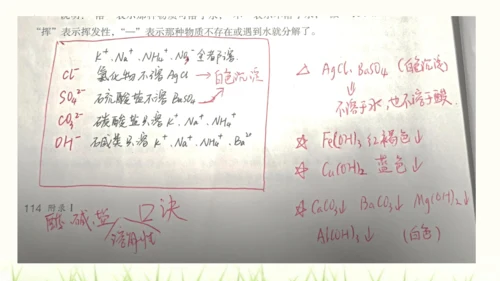 “挥”表示挥发性，“—”表示那种物质不存在或遇到水就分解了。
K⁺、Na⁺、NH₄⁺、NO₃⁻全都溶
Cl⁻ 氯化物不溶AgCl → 白色沉淀
SO₄²⁻ 硫酸盐不溶BaSO₄
CO₃²⁻ 碳酸盐只溶K⁺、Na⁺、NH₄⁺
OH⁻ 碱类只溶K⁺、Na⁺、NH₄⁺、Ba²⁺
114 附录Ⅰ
酸、碱、盐 口诀
溶解性
△ AgCl、BaSO₄ (白色沉淀)
↓
不溶于水，也不溶于酸.
☆ Fe(OH)₃ 红褐色↓
☆ Cu(OH)₂ 蓝色↓
☆ CaCO₃↓ BaCO₃↓ Mg(OH)₂↓
Al(OH)₃↓ (白色)